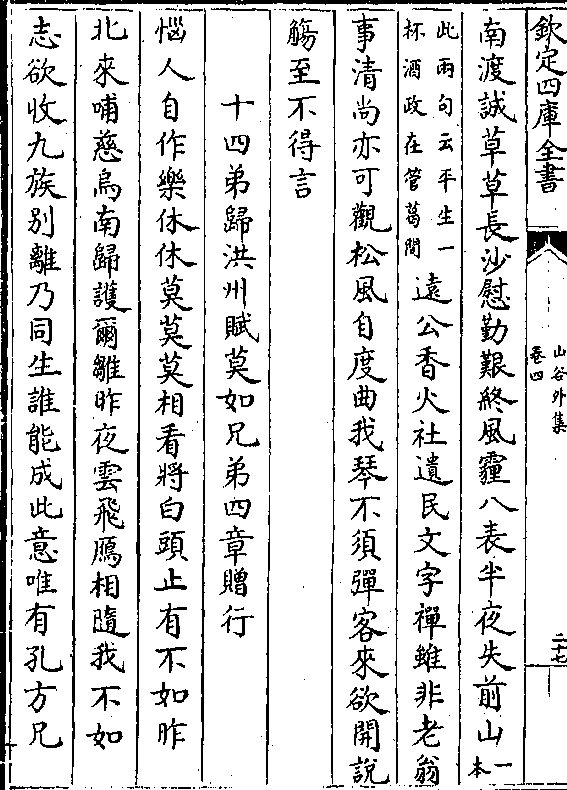 欽定四庫全書
山谷外集
卷四
二十七
南渡誠草草長沙慰勤艱終風霾八表半夜失前山一本
此兩句云平生一
杯酒政在管葛間
遠公香火社遺民文字禪雖非老翁
事清尚亦可觀松風自度曲我琴不須彈客來欲開說
觴至不得言
十四弟歸洪州賦莫如兄弟四章贈行
惱人自作樂休休莫莫莫相看將白頭止有不如昨
北來哺慈烏南歸護爾雛昨夜雲飛鴈相隨我不如
志欲收九族别離乃同生誰能成此意唯有孔方兄